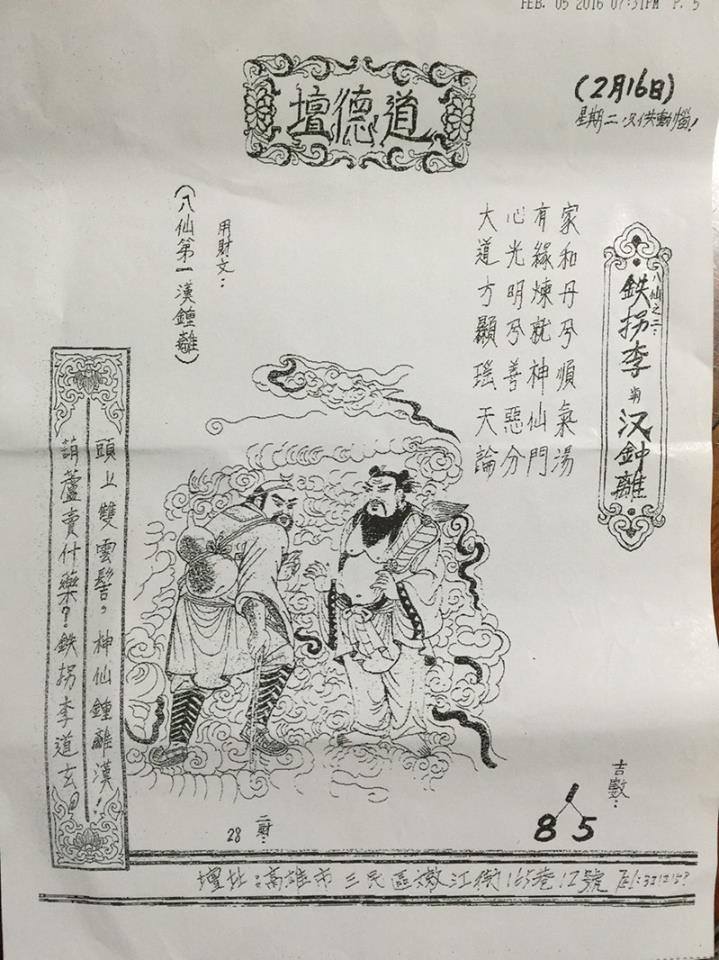 FEB. 05 2016 07:31PM P. 5
道德壇
(2月16日)
星期二
八仙之二：
鉄拐李 漢鈡離
家和丹兮順氣湯
有緣煉就神仙門
心光明兮善惡分
大道方顯瑤天論
用財文：
(八仙第一漢鍾離)
頭上雙雲髻，神仙鍾離漢！
葫蘆賣什藥？鉄拐李道玄！
吉數：
1
8 5
二財：
28
壇址：高雄市三民區嫩江街165巷12號